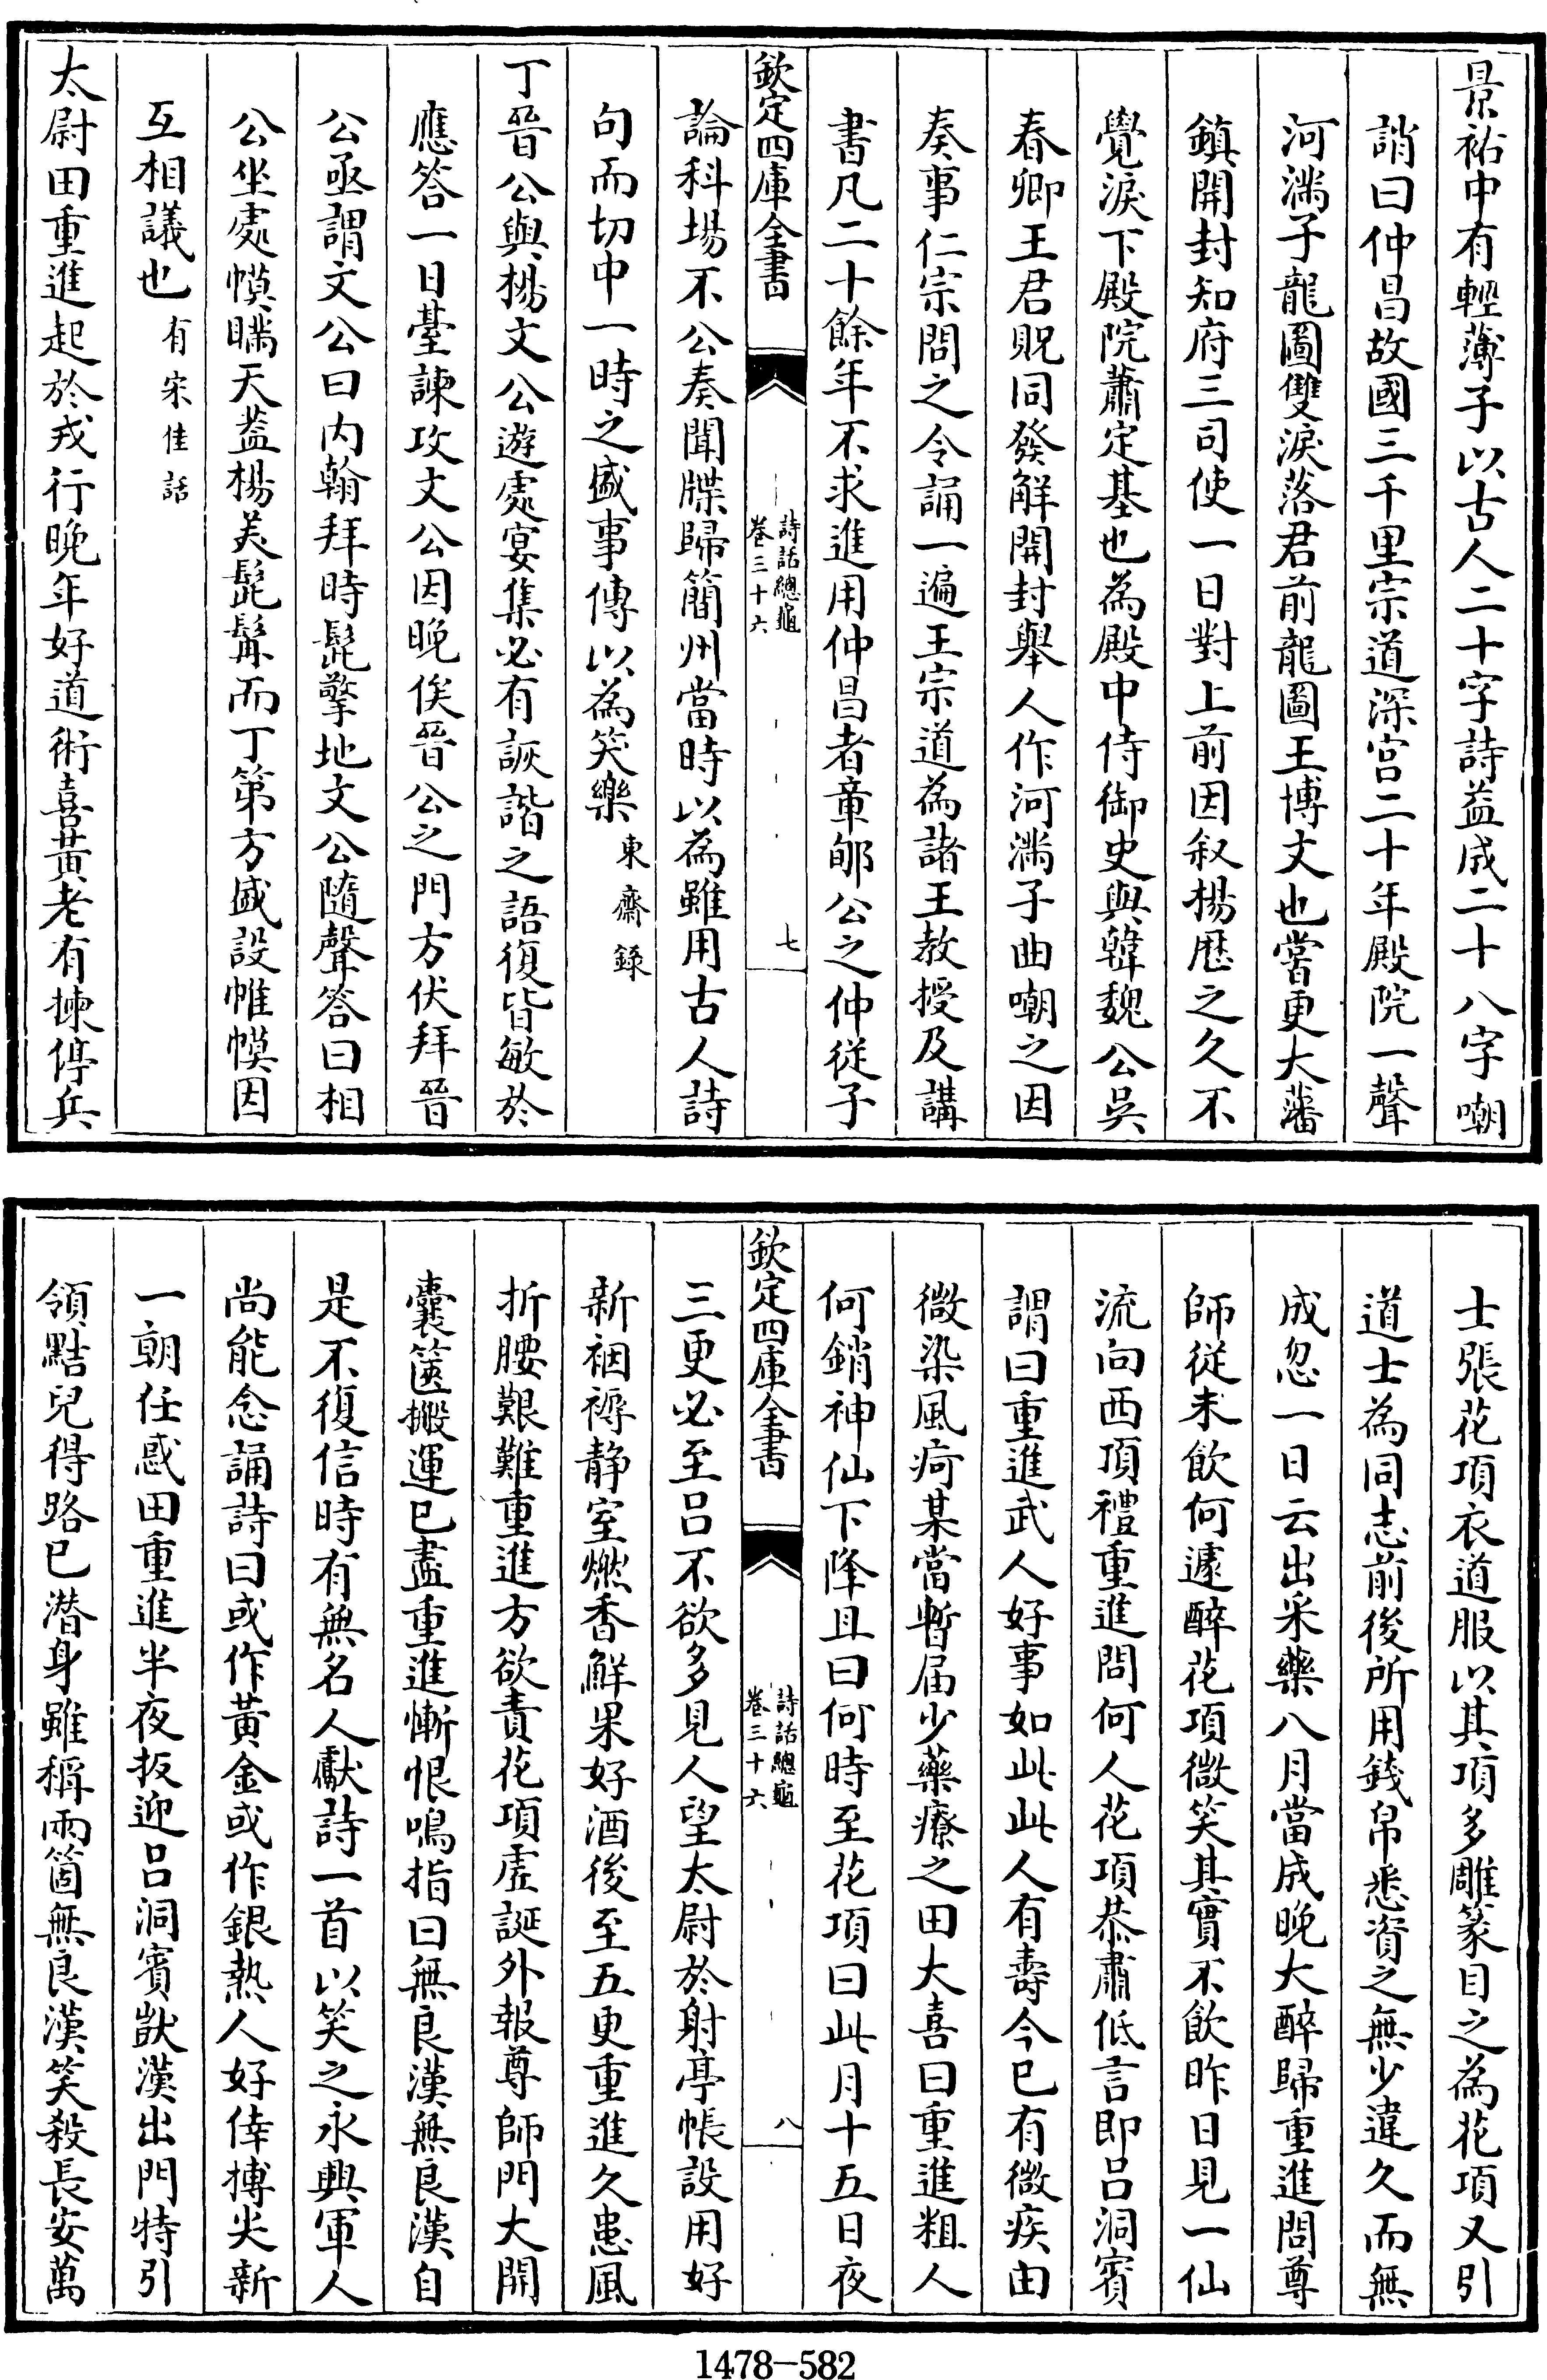 景祐中有輕薄子以古人二十字詩益成二十八字嘲
誚曰仲昌故國三千里宗道深宮二十年殿院一聲
河滿子龍圖雙淚落君前龍圖王博文也嘗更大藩
鎮開封知府三司使一日對上前因叙揚歷之久不
覺淚下殿院蕭定基也為殿中侍御史與韓魏公吳
春卿王君貺同發解開封舉人作河滿子曲嘲之因
奏事仁宗問之令誦一遍王宗道為諸王教授及講
書凡二十餘年不求進用仲昌者章郇公之仲從子
欽定四庫全書
詩話總龜
卷三十六
七
論科場不公奏聞牒歸簡州當時以為雖用古人詩
句而切中一時之盛事傳以為笑樂東齋錄
丁晉公與楊文公遊處宴集必有詼諧之語復皆敏於
應答一日臺諫攻文公因晚俟晉公之門方伏拜晉
公亟謂文公曰內翰拜時髭擎地文公隨聲答曰相
公坐處幙瞞天蓋楊美髭髯而丁第方盛設帷幙因
互相議也有宋佳話
太尉田重進起於戎行晚年好道術喜黃老有揀停兵
士張花項衣道服以其項多雕篆目之為花項又引
道士為同志前後所用錢帛悉資之無少違久而無
成忽一日云出采藥八月當成晚大醉歸重進問尊
師從來飲何遽醉花項微笑其實不飲昨日見一仙
流向西頂禮重進問何人花項恭肅低言即呂洞賓
謂曰重進武人好事如此此人有壽今已有微疾由
微染風疴某當暫届少藥療之田大喜曰重進粗人
何銷神仙下降且曰何時至花項曰此月十五日夜
欽定四庫全書
詩話總龜
卷三十六
八
三更必至呂不欲多見人望太尉於射亭帳設用好
新裀褥静室燃香鮮果好酒後至五更重進久患風
折腰艱難重進方欲責花項虛誕外報尊師門大開
囊篋搬運已盡重進慚恨鳴指曰無良漢無良漢自
是不復信時有無名人獻詩一首以笑之永興軍人
尚能念誦詩曰或作黃金或作銀熱人好倖摶尖新
一朝任惑田重進半夜扳迎呂洞賓獃漢出門特引
領黠兒得路已潛身雖稱兩箇無良漢笑殺長安萬
1478-582